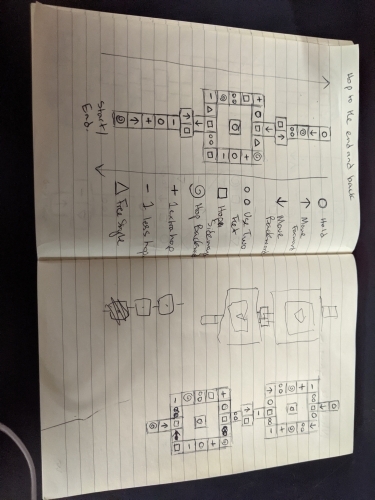 Hop to the end and back
Start/
End.
O Hold
↑ Move
Forward
↓ Move
Backward
O O Use Two
Feet
□ Hop
Sideways
Hop Backward
+ 1 extra hop
- 1 less hop
△ Free Style